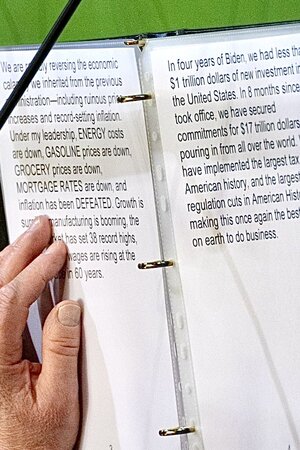 We are reversing the economic
we inherited from the previous
including ruinous price
increases and record-setting inflation.
Under my leadership, ENERGY costs
are down, GASOLINE prices are down,
GROCERY prices are down,
MORTGAGE RATES are down, and
inflation has been DEFEATED. Growth is
manufacturing is booming, the
has set 38 record highs,
wages are rising at the
in 60 years.
In four years of Biden, we had less tha
$1 trillion dollars of new investment in
the United States. In 8 months since
took office, we have secured
commitments for $17 trillion dollars
pouring in from all over the world.
have implemented the largest tax
American history, and the largest
regulation cuts in American Histo
making this once again the best
on earth to do business.